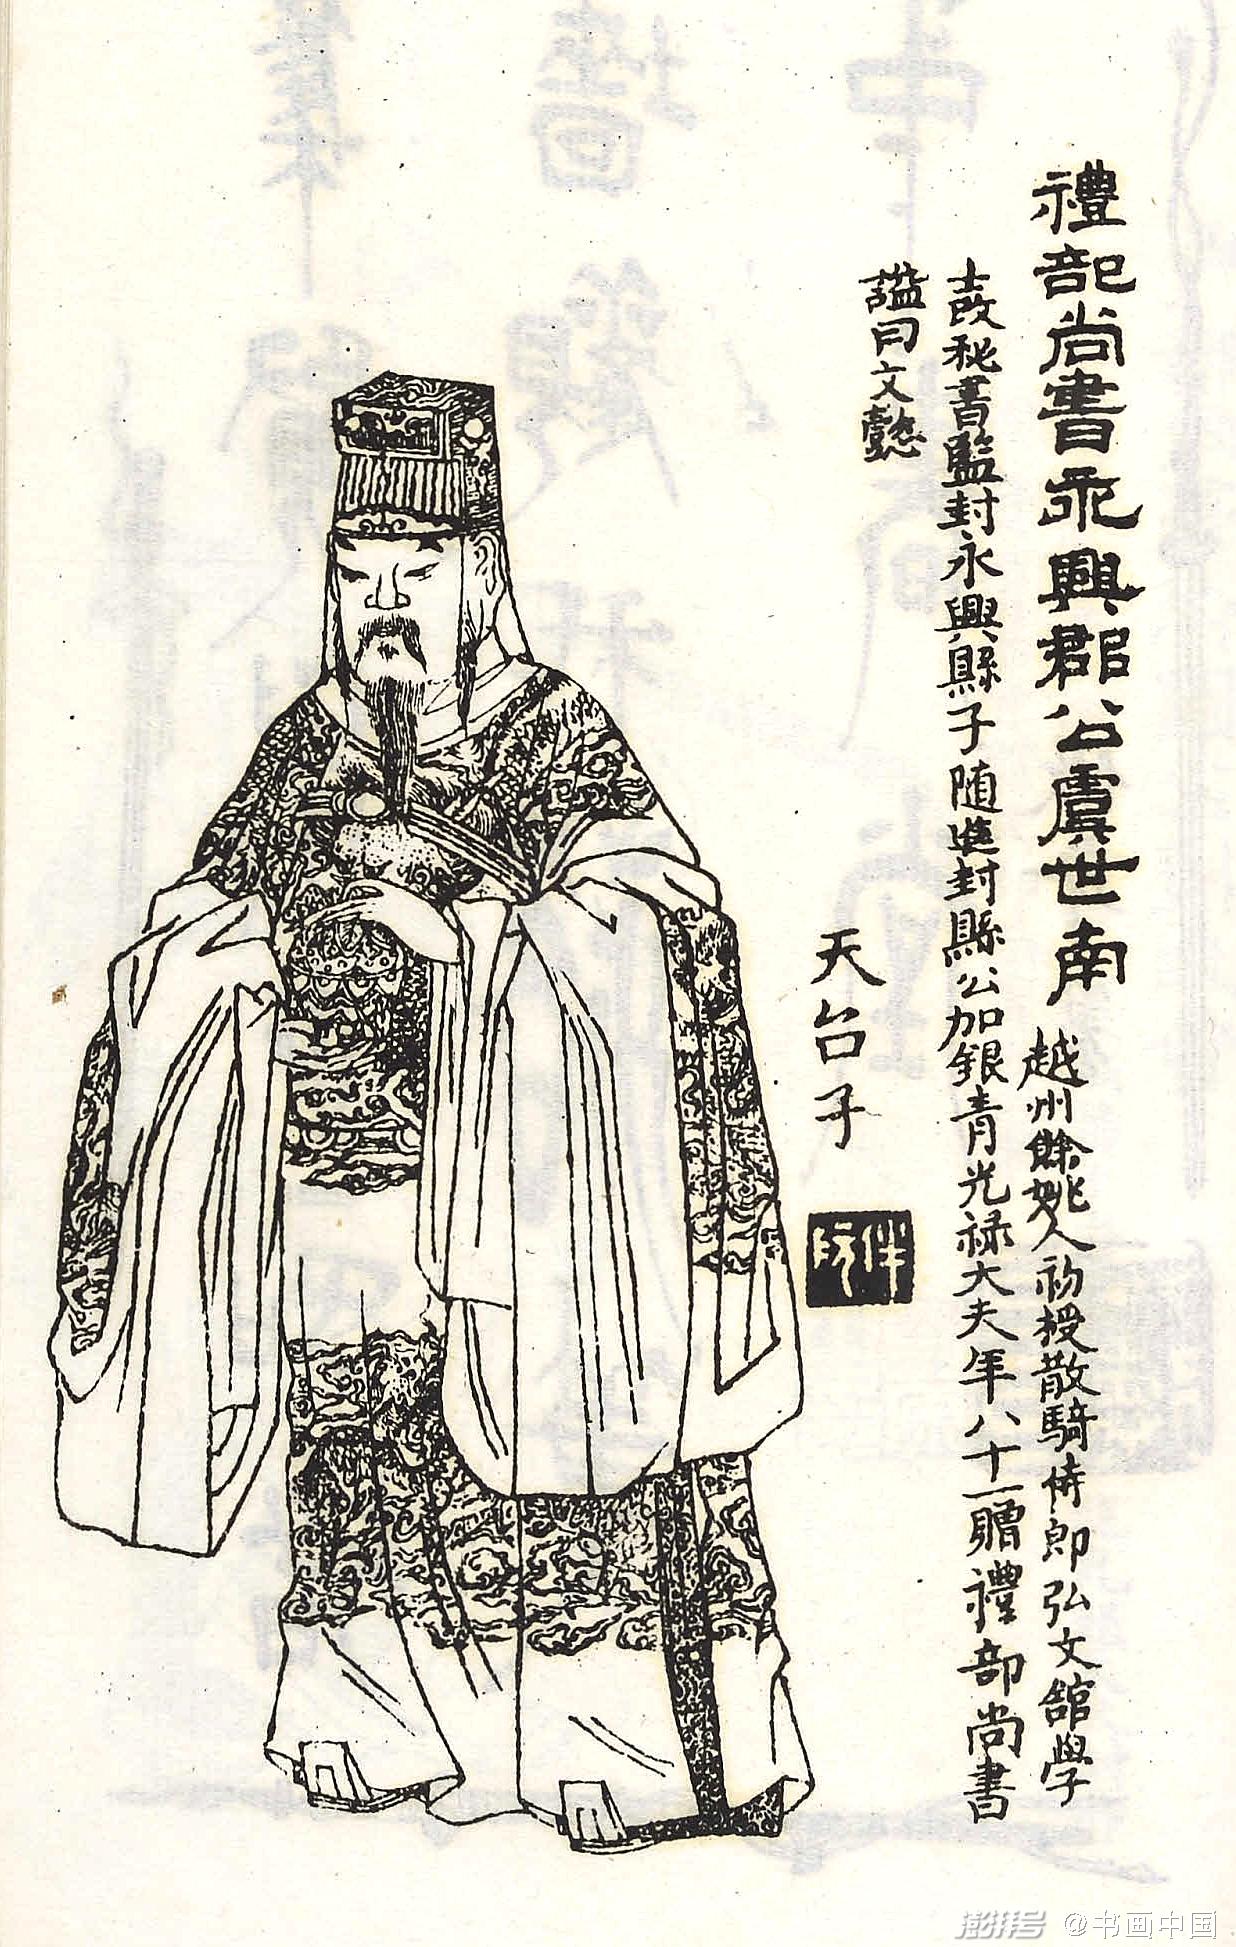 禮部尚書永興郡公虞世南 越州餘姚人初授散騎侍郎弘文舘學
士改秘書監封永興縣子随進封縣公加銀青光禄大夫年八十一贈禮部尚書
諡曰文懿
天台子
澎湃号 @书画中国